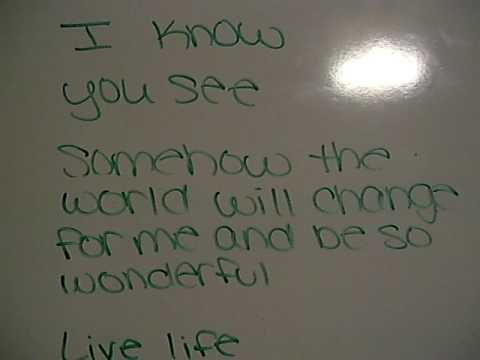 I know
you see
Somehow the
world will change
for me and be so
wonderful
Live life